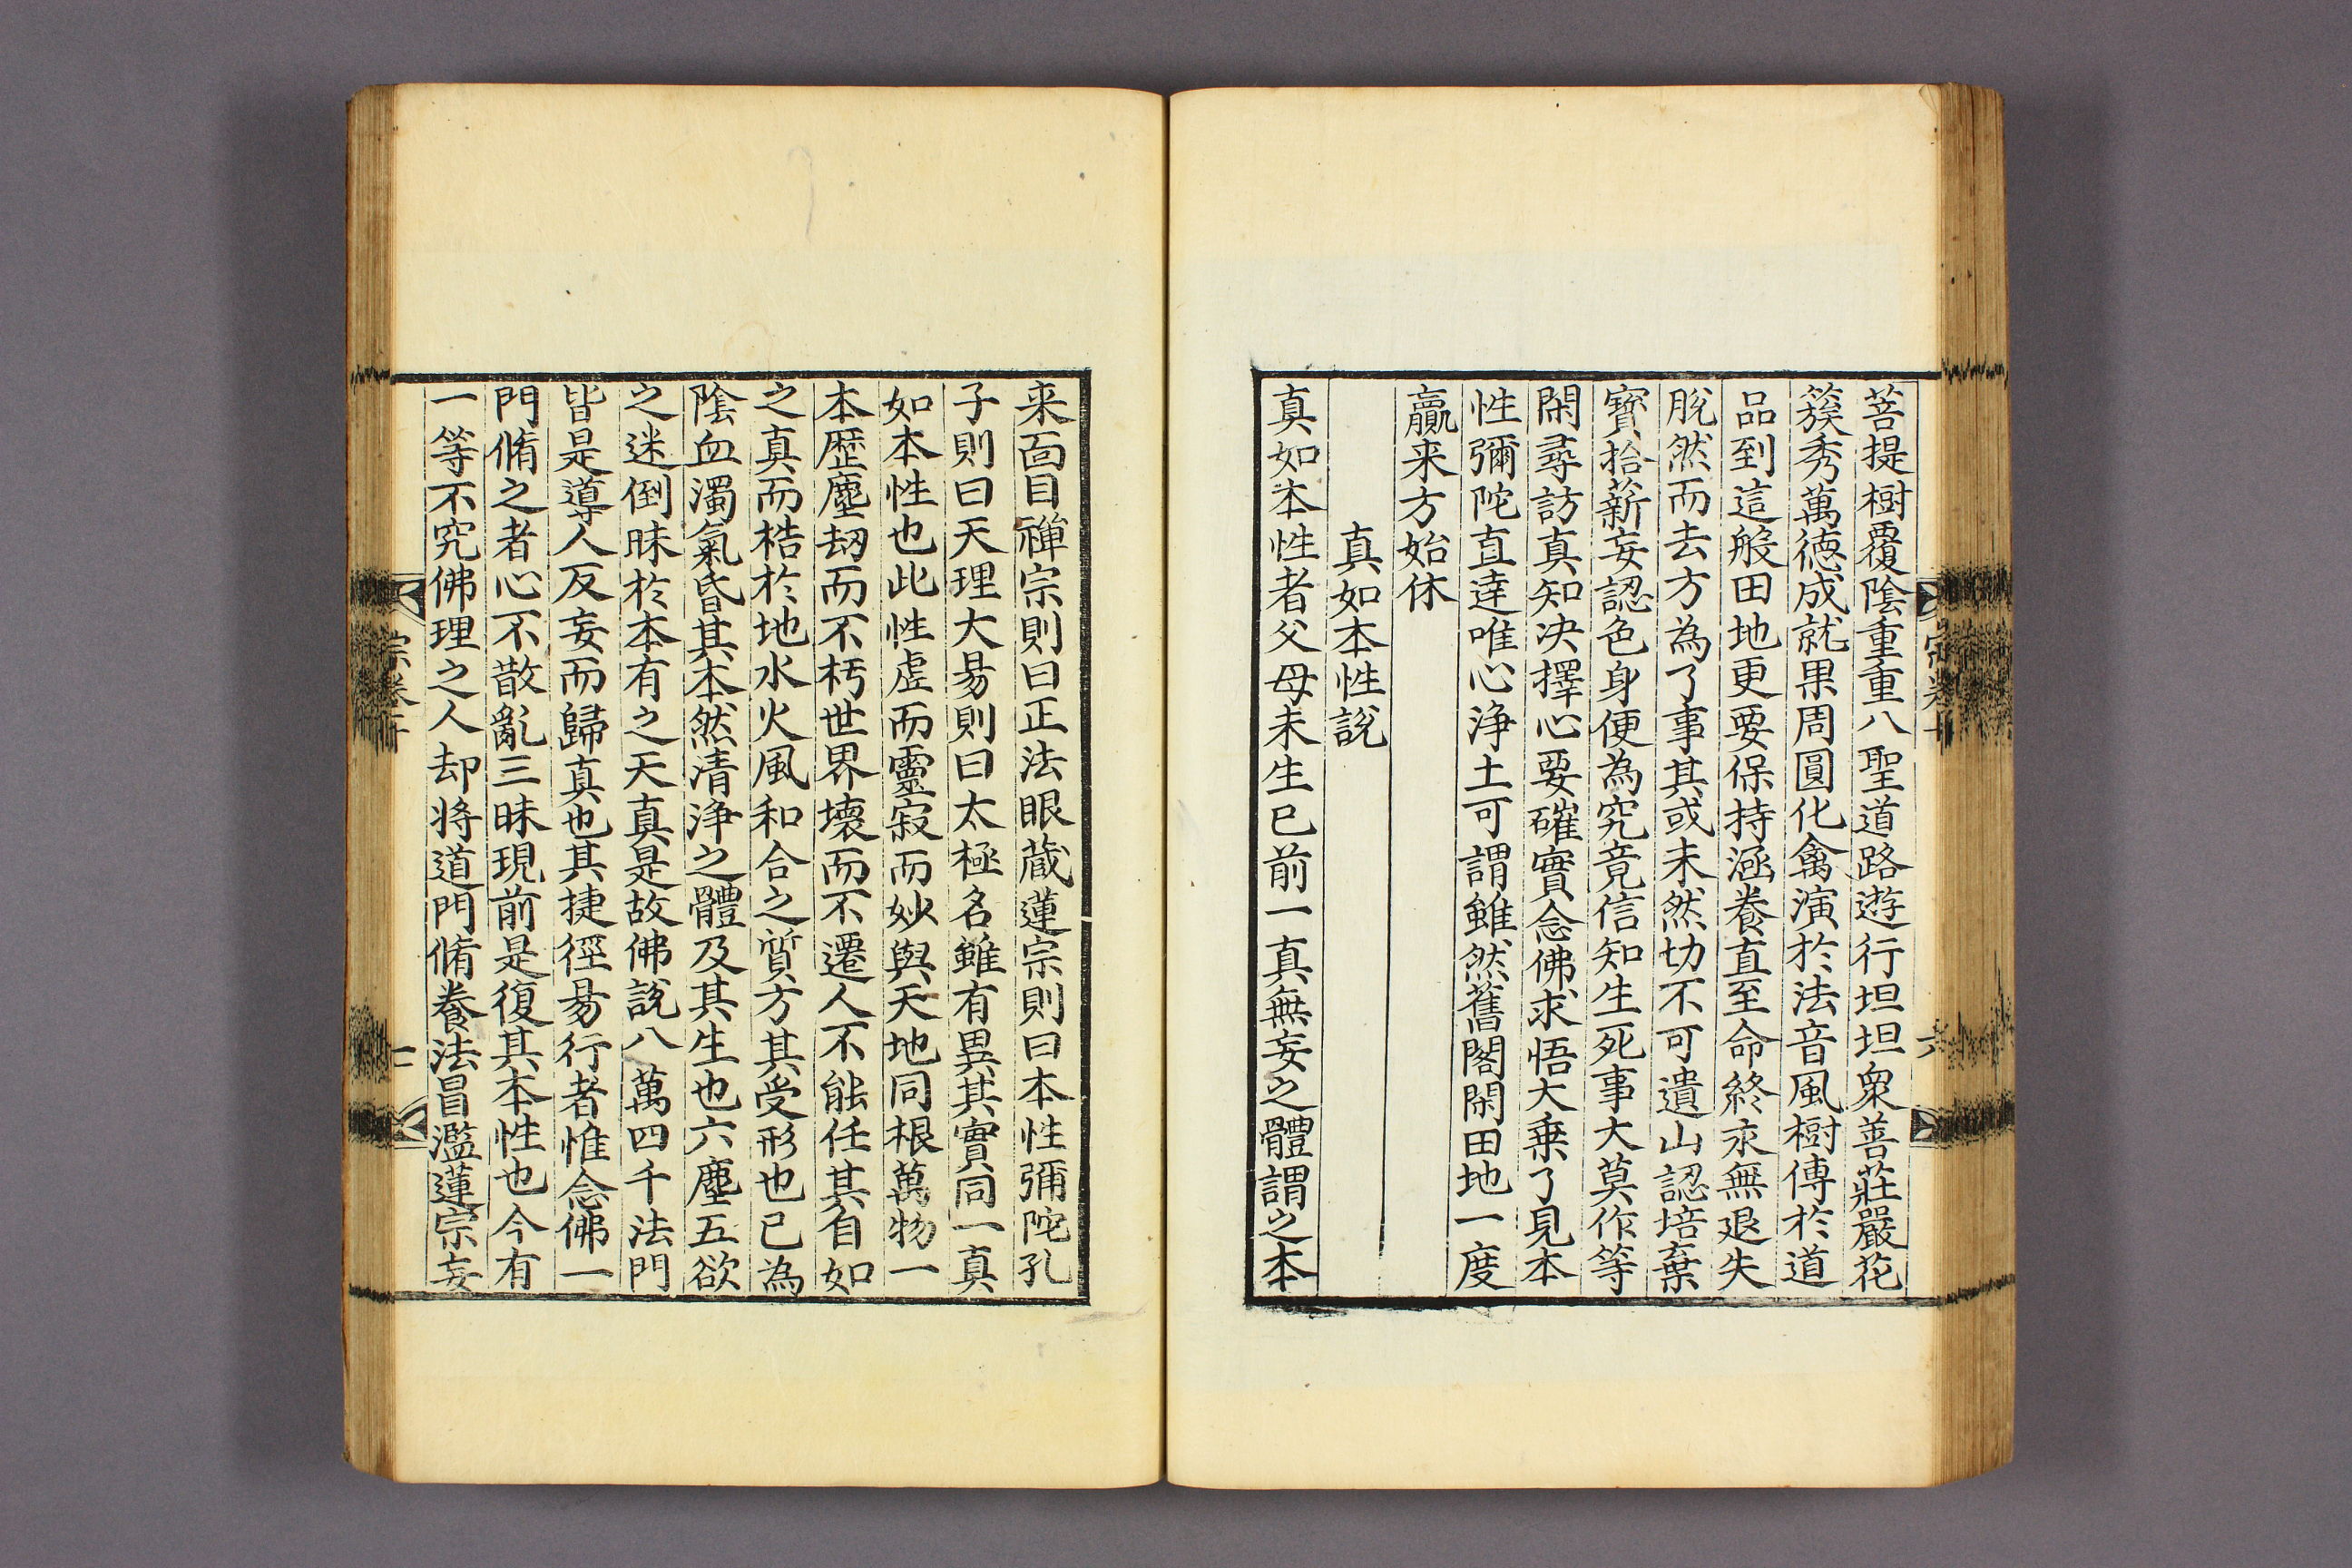 菩提樹覆陰重重八聖道路遊行坦坦衆善莊嚴花
簇秀萬德成就果周圓化禽演於法音風樹傳於道
品到這般田地更要保持涵養直至命終永無退失
脫然而去方為了事其或未然切不可遺山認培棄
寶拾薪妄認色身便為究竟信知生死事大莫作等
閑尋訪真知決擇心要確實念佛求悟大乗了見本
性彌陀直達唯心淨土可謂雖然舊閣閑田地一度
贏来方始休
真如本性說
真如本性者父母未生已前一真無妄之體謂之本
来面目禪宗則曰正法眼蔵蓮宗則曰本性彌陀孔
子則曰天理大易則曰太極名雖有異其實同一真
如本性也此性虚而靈寂而妙與天地同根萬物一
本歴塵劫而不朽世界壞而不遷人不能任其自如
之真而梏於地水火風和合之質方其受形也已為
陰血濁氣昏其本然清淨之體及其生也六塵五欲
之迷倒昧於本有之天真是故佛說八萬四千法門
皆是導人反妄而歸真也其捷徑易行者惟念佛一
門脩之者心不散亂三昧現前是復其本性也今有
一等不究佛理之人却将道門脩養法冒濫蓮宗妄